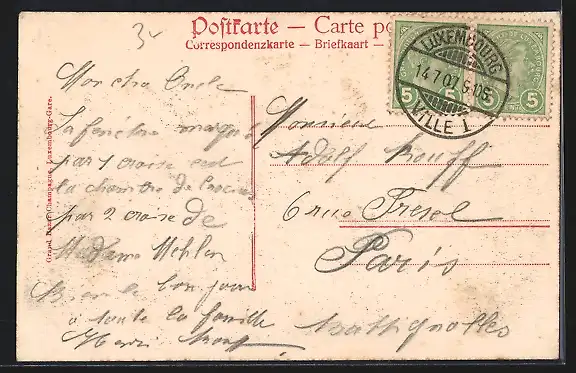 34
Postkarte — Carte po
Correspondenzkarte — Briefkaart —
LUXEMBOURG
14 7 07
VILLE 1
5 5 5
Grand Bazar Champagne, Luxembourg-Gare.
Mon cher Oncle
la fenêtre marqué
par 1 croise est
la chambre de
par 2 croise de
Madame Mehlen
Bien le bonjour
à toute la famille
Monsieur
Adolf
6 rue Fresel
Paris
Battignolles